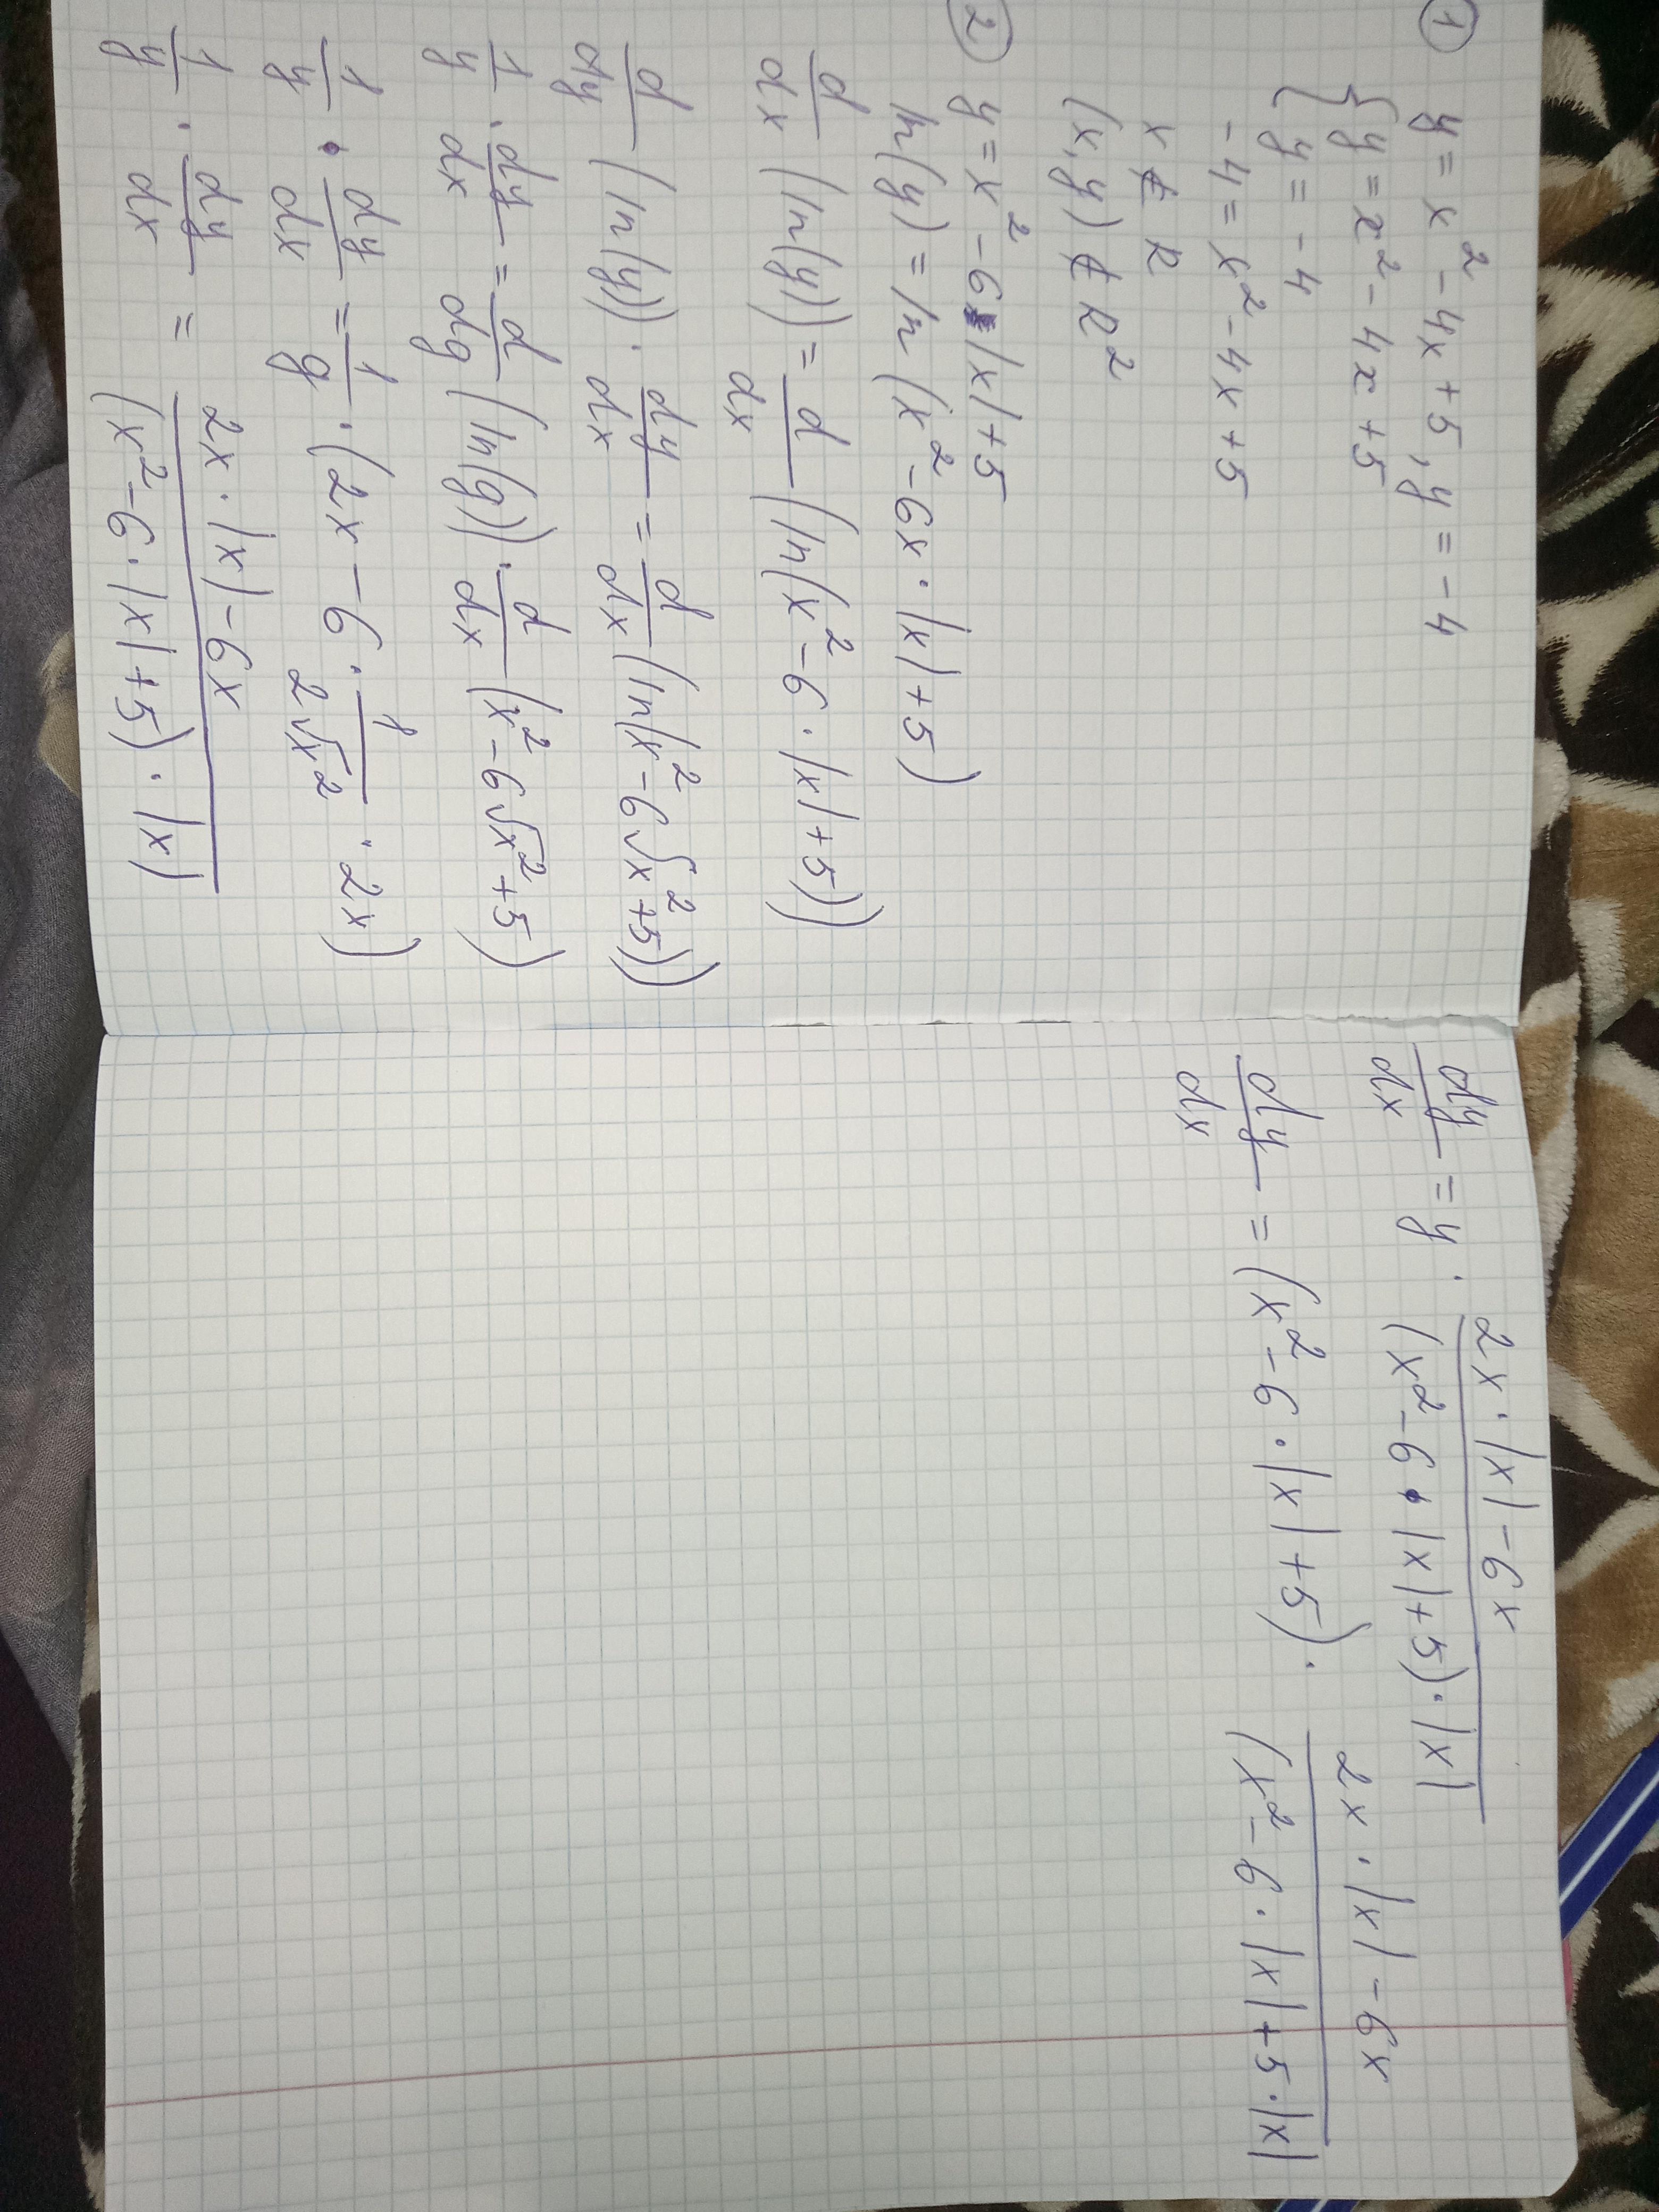 ① y = x² - 4x + 5, y = -4
{ y = x² - 4x + 5
{ y = -4
-4 = x² - 4x + 5
x ∉ R
(x, y) ∉ R²
② y = x² - 6|x| + 5
ln(y) = ln(x² - 6x · |x| + 5)
d/dx (ln(y)) = d/dx (ln(x² - 6 · |x| + 5))
d/dy (ln(y)) · dy/dx = d/dx (ln(x² - 6√x² + 5))
1/y · dy/dx = d/dg (ln(g)) · d/dx (x² - 6√x² + 5)
1/y · dy/dx = 1/g · (2x - 6 · 1/2√x² · 2x)
1/y · dy/dx = 2x · |x| - 6x / (x² - 6 · |x| + 5) · |x|
dy/dx = y · 2x · |x| - 6x / (x² - 6 · |x| + 5) · |x|
dy/dx = (x² - 6 · |x| + 5) · 2x · |x| - 6x / (x² - 6 · |x| + 5 · |x|